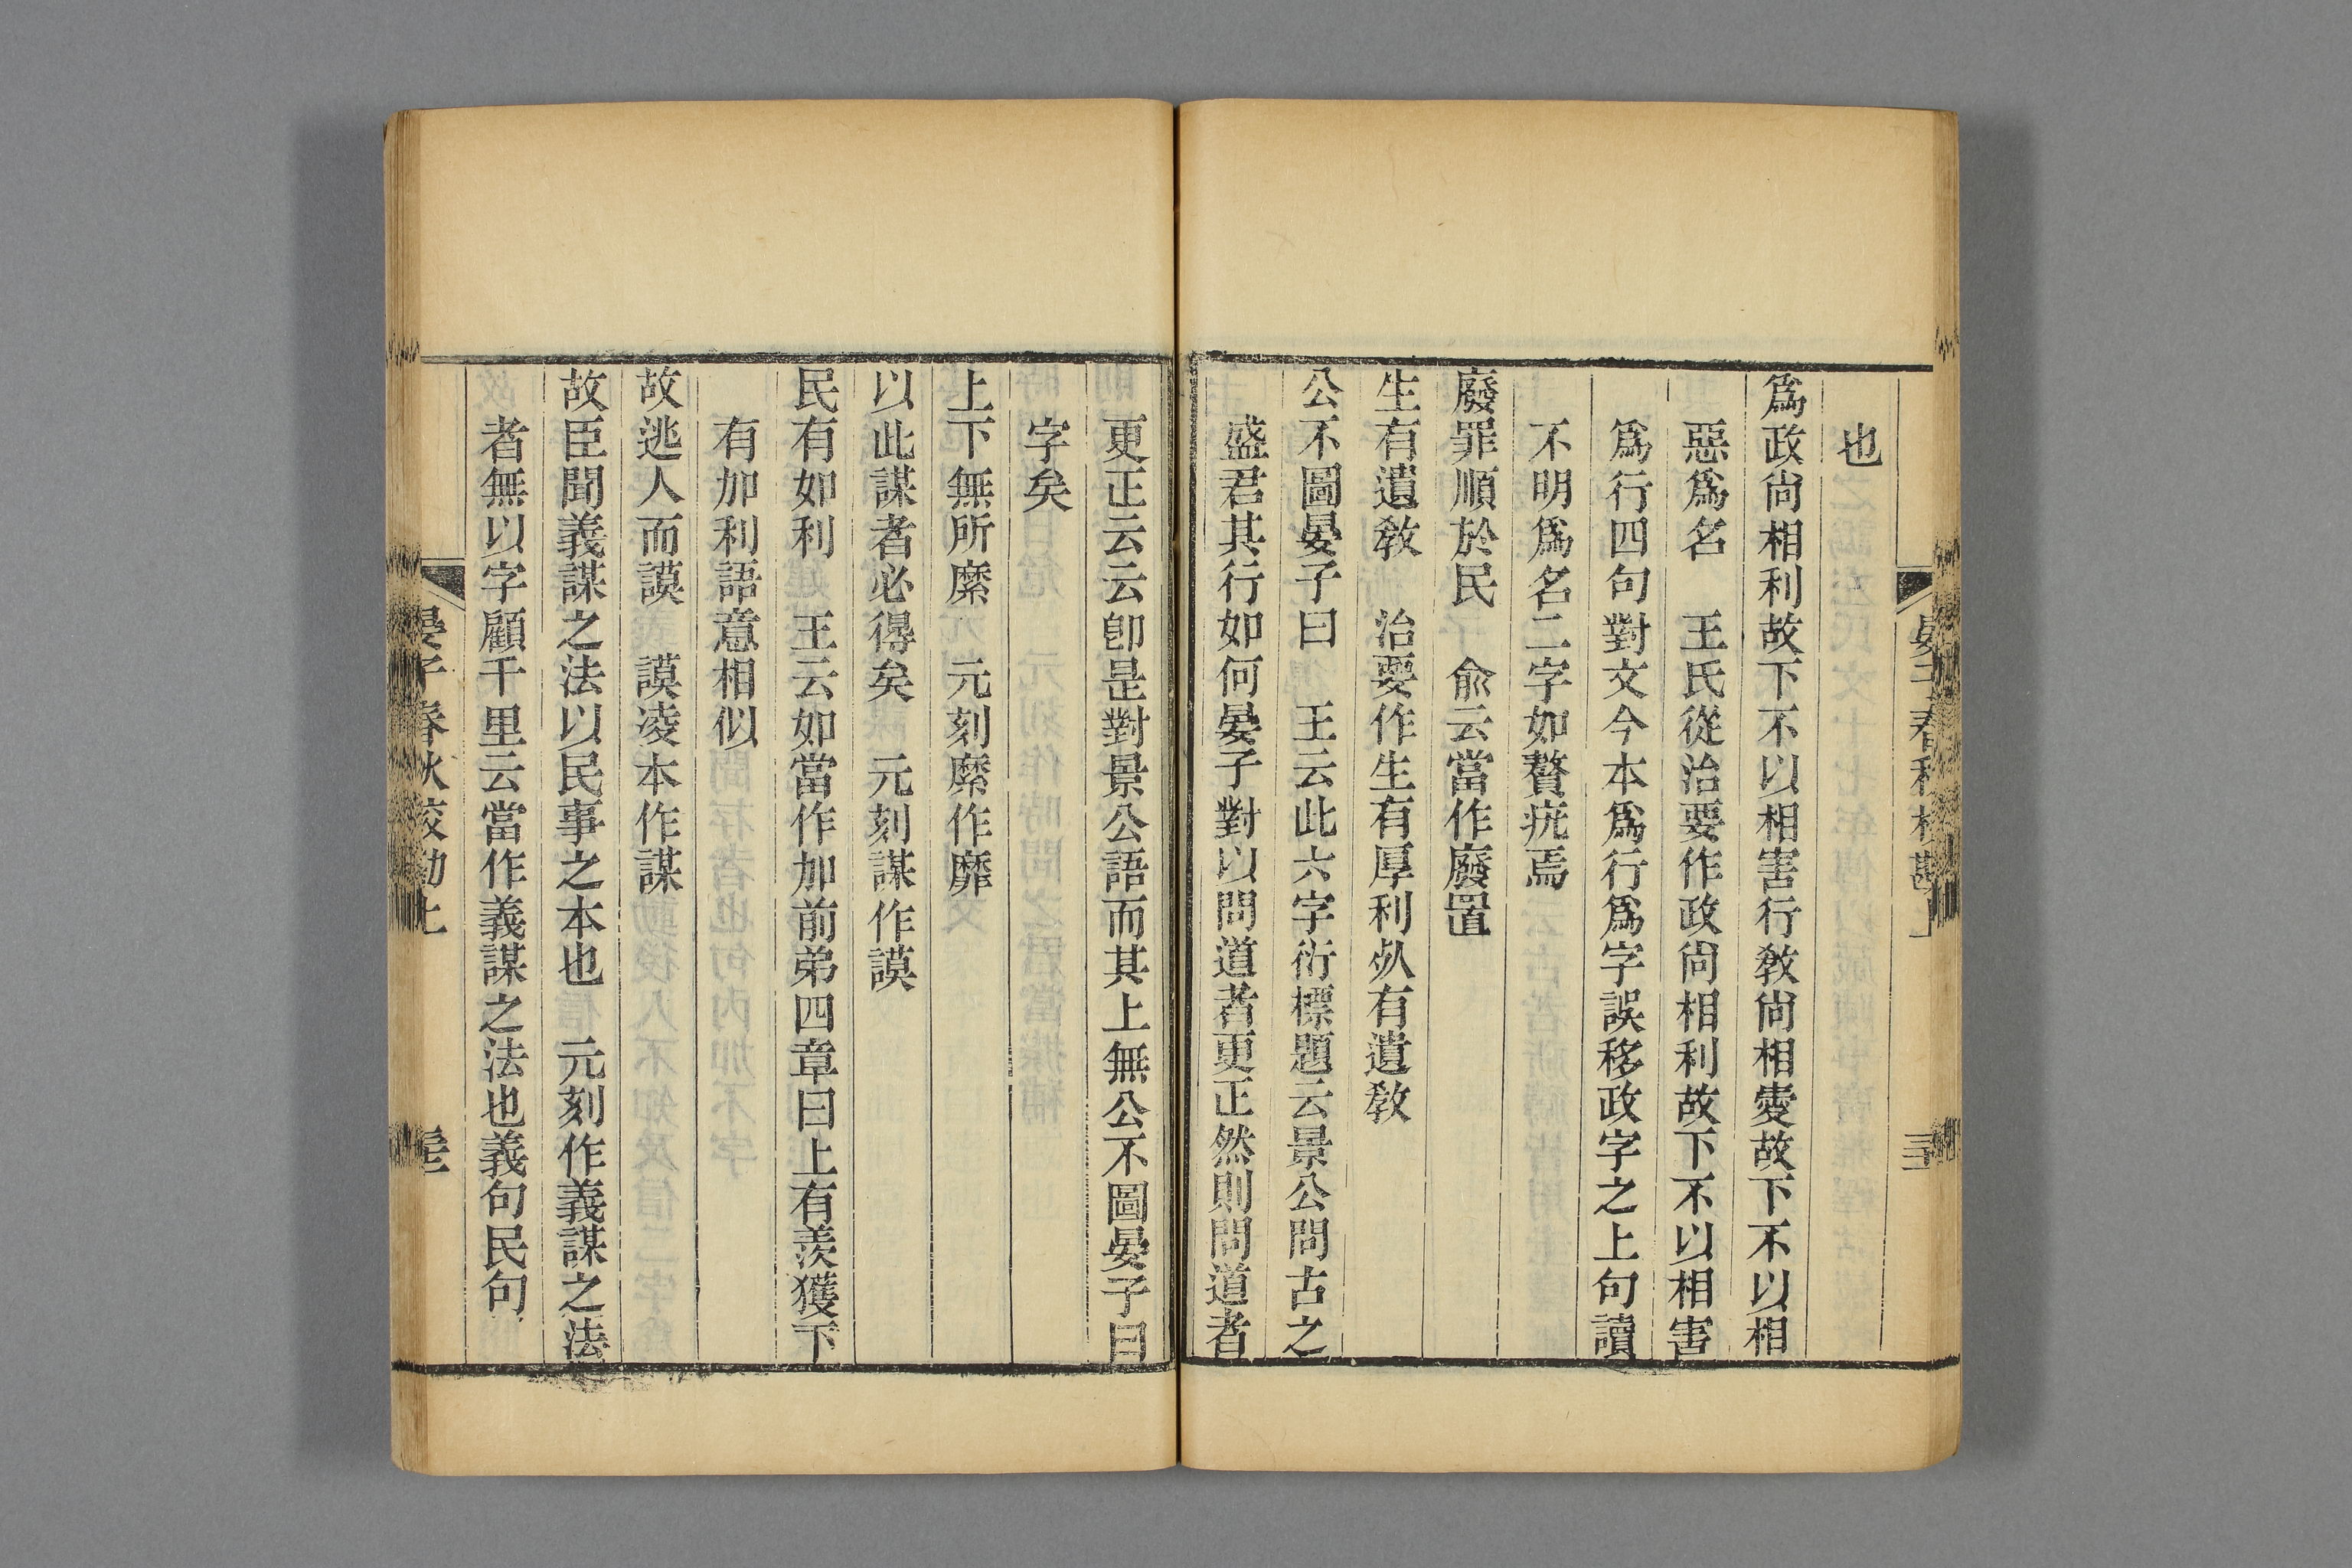 也
爲政尙相利故下不以相害行敎尙相愛故下不以相
惡爲名　王氏從治要作政尙相利故下不以相害
爲行四句對文今本爲行爲字誤移政字之上句讀
不明爲名二字如贅疣焉
廢罪順於民　俞云當作廢置
生有遺敎　治要作生有厚利㱙有遺敎
公不圖晏子曰　王云此六字衍標題云景公問古之
盛君其行如何晏子對以問道者更正然則問道者
更正云云卽是對景公語而其上無公不圖晏子曰
字矣
上下無所縻　元刻縻作靡
以此謀者必得矣　元刻謀作謨
民有如利　王云如當作加前弟四章曰上有羨獲下
有加利語意相似
故逃人而謨　謨凌本作謀
故臣聞義謀之法以民事之本也　元刻作義謀之法
者無以字顧千里云當作義謀之法也義句民句
晏子春秋校勘上